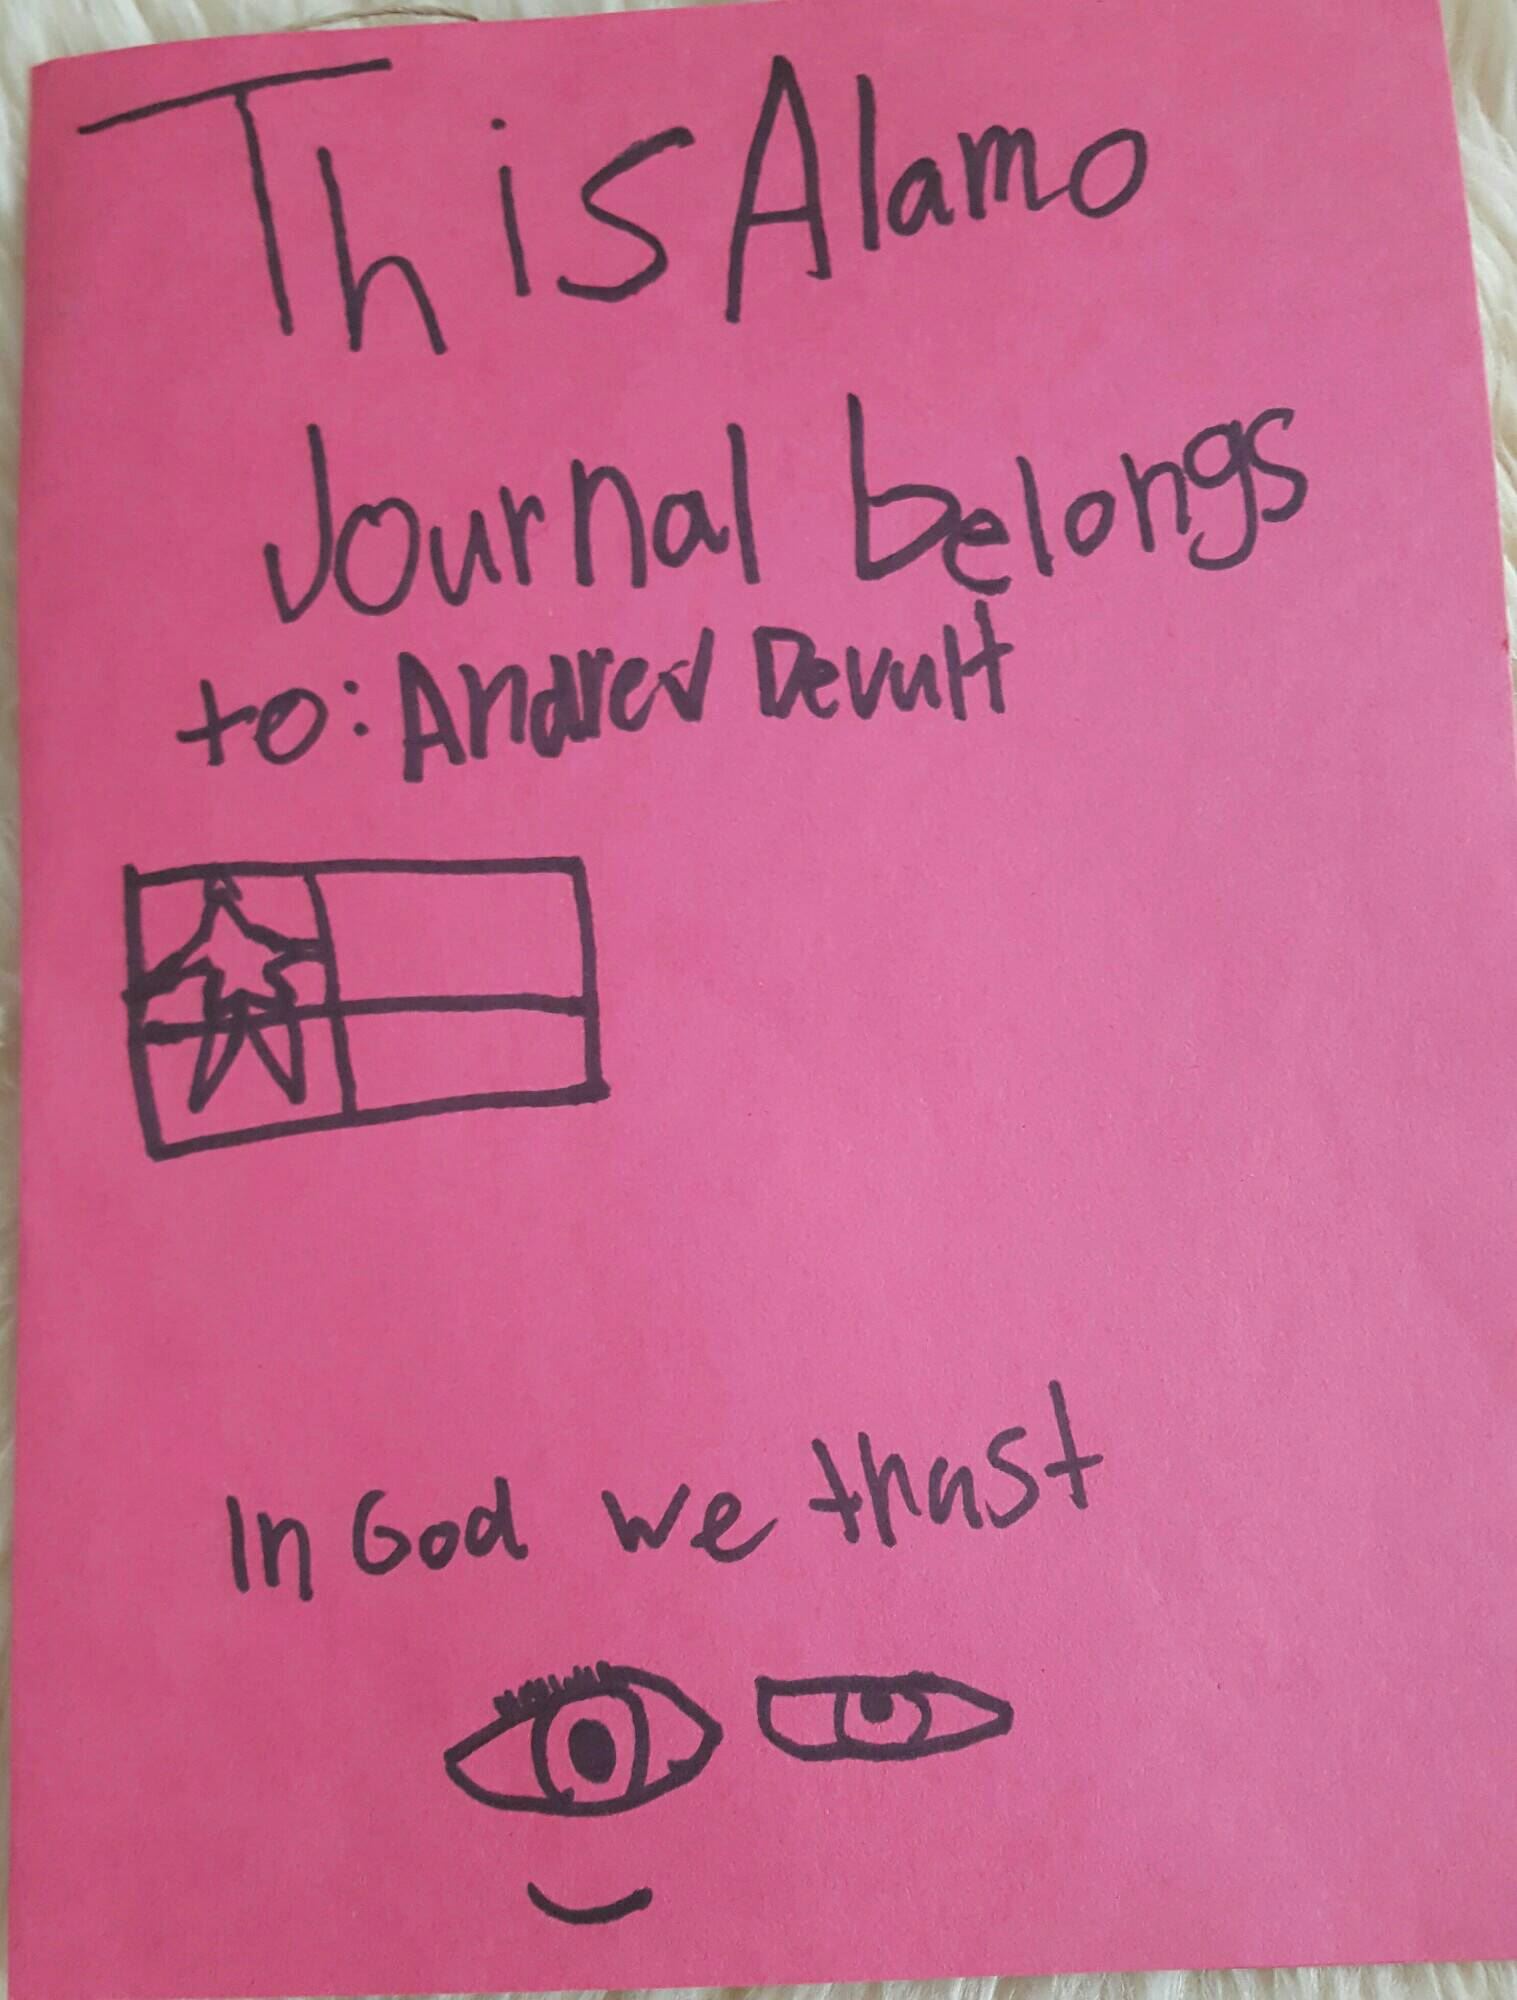 This Alamo
Journal belongs
to: Andrew Devult
In God we thast